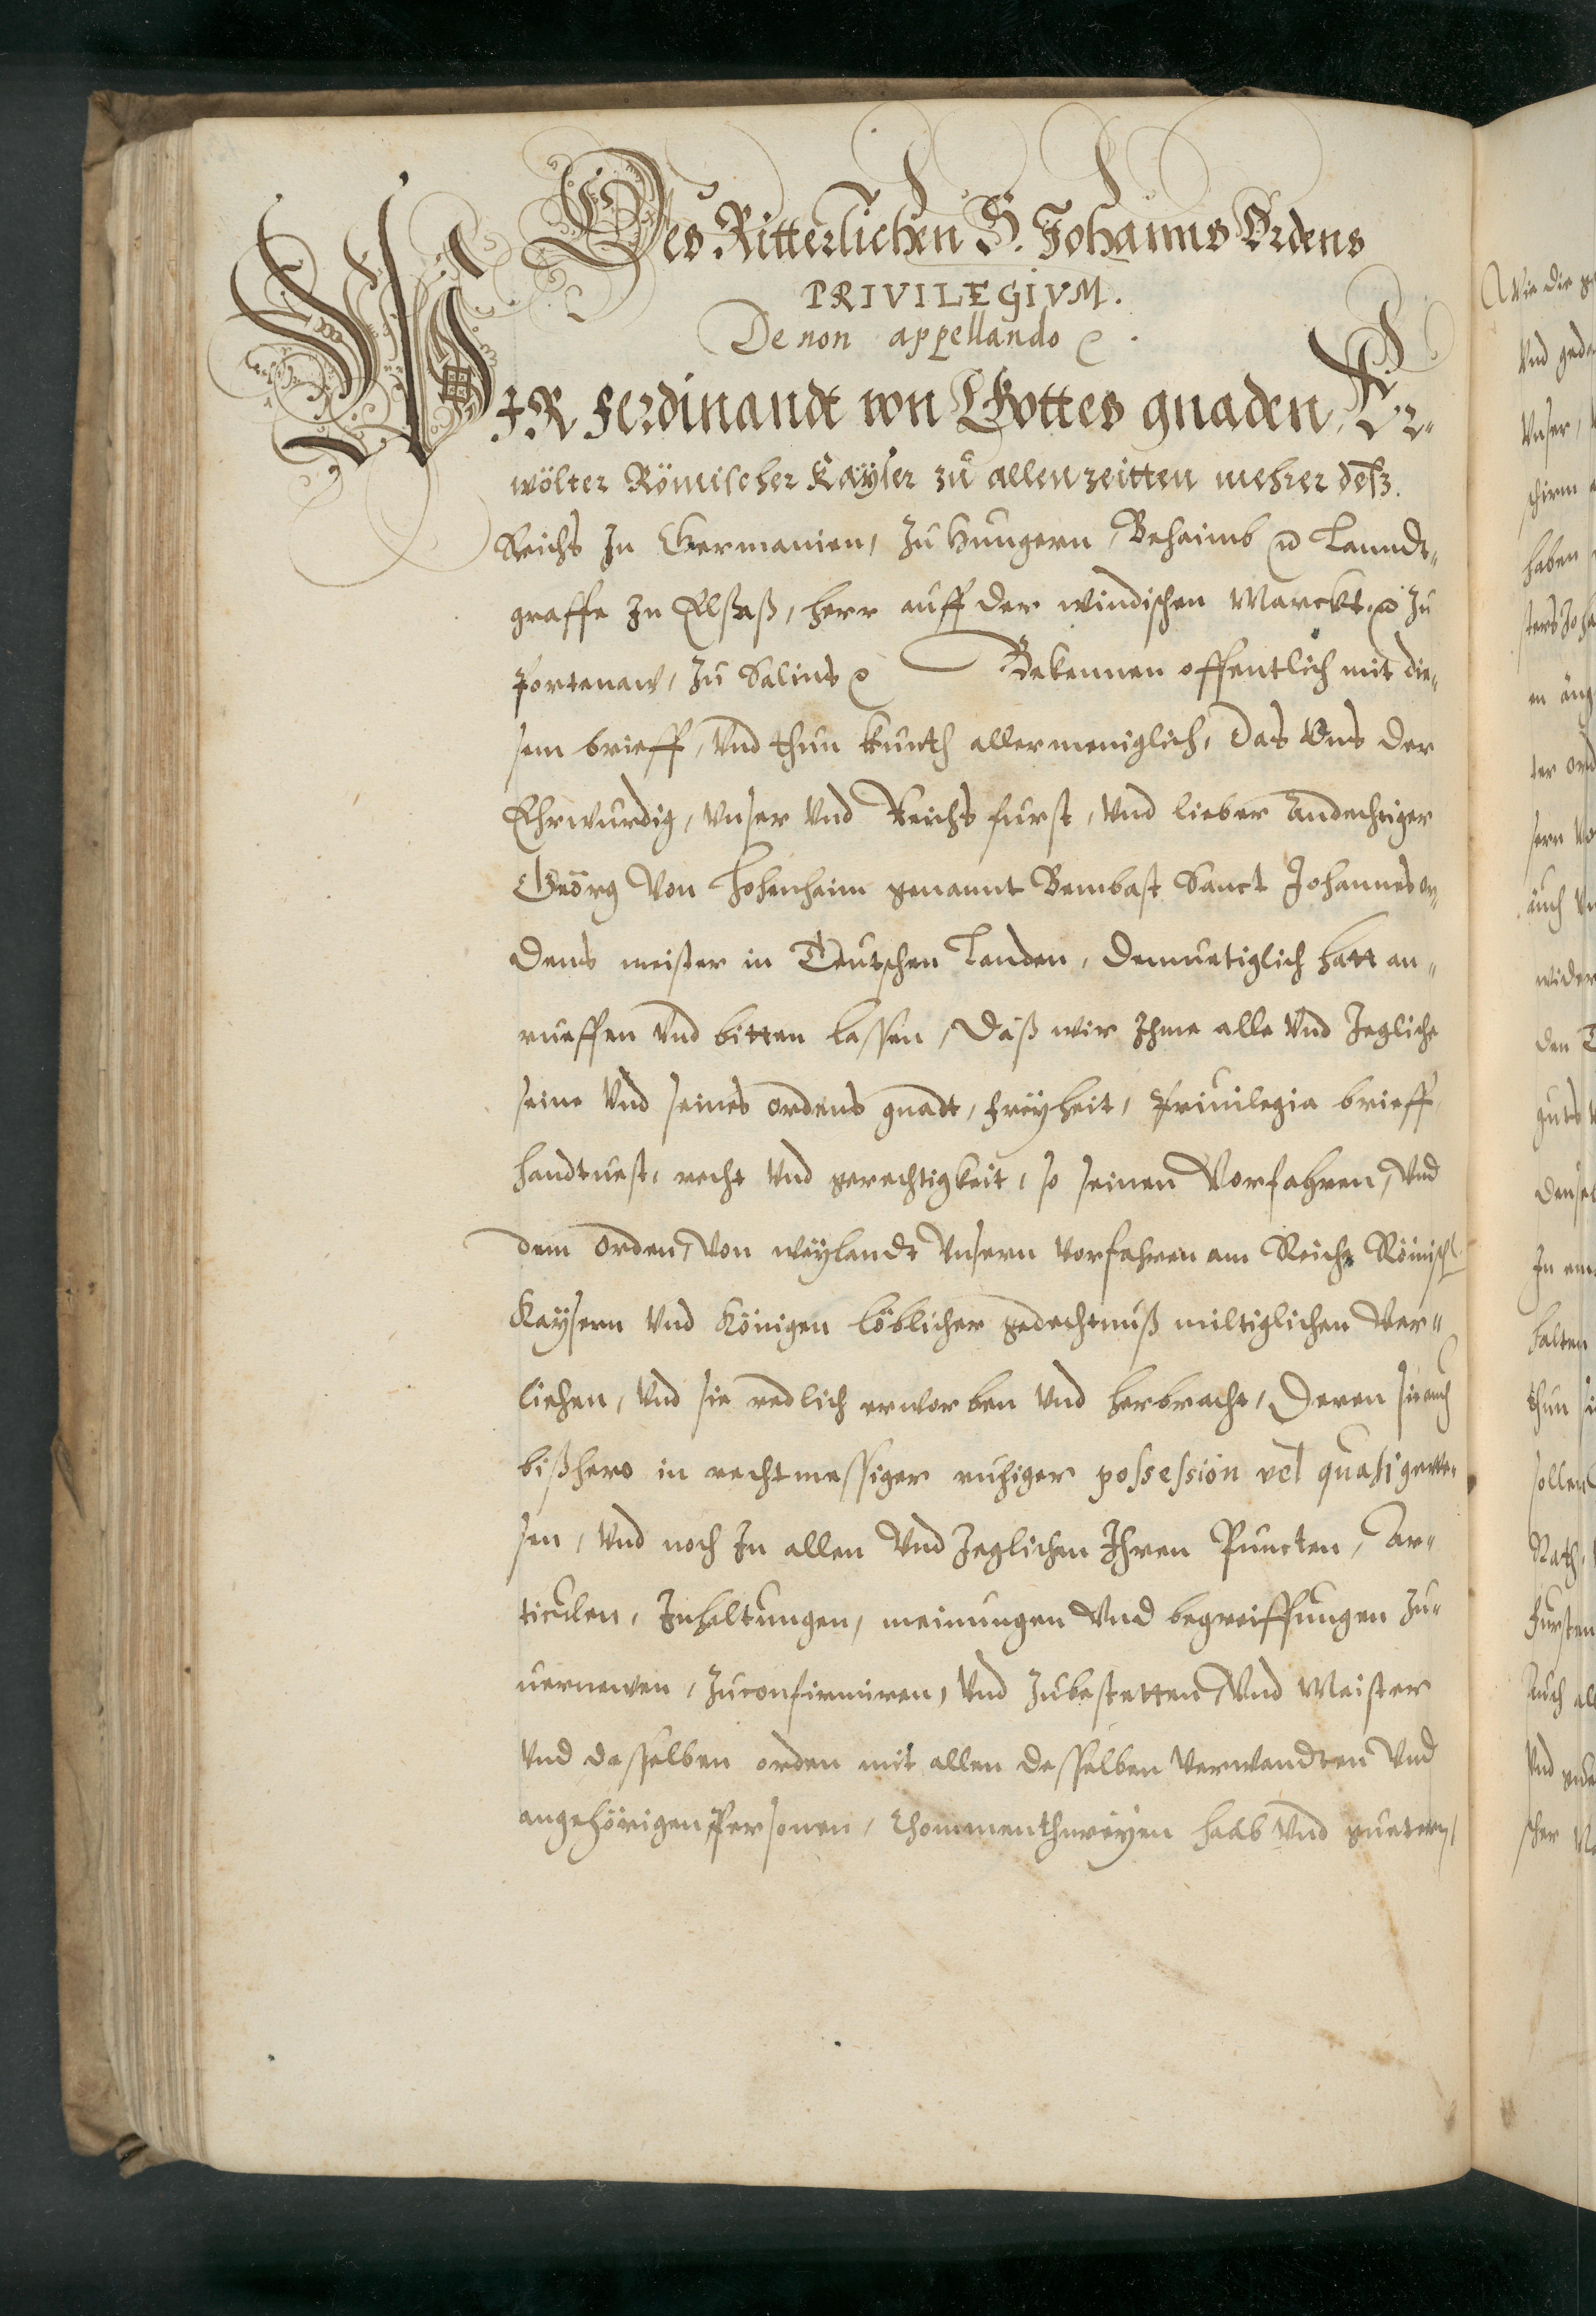 Des Ritterlichen S. Johanns Ordens
PRIVILEGIVM.
De non appellando ꝛc.
WIR Ferdinandt von Gottes gnaden, Er-
wölter Römischer Kayser zu allen zeitten mehrer deß
Reichs In Germanien, Zu Hungern, Behaimb ꝛc Lanndt-
graffe In Elsaß, herr auff der windischen Marckt, ꝛc Zu
Portenaw, Zu Salins ꝛc Bekennen offentlich mit die-
sem brieff, Vnd thun kunth allermeniglich, Das Vns der
Ehrwurdig, Vnser Vnd Reichs furst, Vnd lieber Andechtiger
Geörg Von Hohenheim genannt Bombast Sanct Johannes or-
dens meister in Teutschen Landen, Demuetiglich hatt an-
rueffen Vnd bitten lassen, Daß wir Ihme alle Vnd Iegliche
seine Vnd seines ordens gnadt, freyheit, Priuilegia brieff,
handtuest, recht Vnd gerechtigkeit, so seinen Vorfahren, Vnd
dem Orden, Von weylandt Vnsern Vorfahren am Reiche Römisch
Kaysern Vnd Königen löblicher gedechtnuß miltiglichen Ver-
liehen, Vnd sie redlich erworben Vnd herbracht, Deren sie auch
bißhero in rechtmessiger ruhiger possession vel quasi gewe-
sen, Vnd noch In allen Vnd Jeglichen Ihren Puncten, Ar-
ticulen, Inhaltungen, meinungen Vnd begreiffungen Zu-
uernewen, Zu confirmiren, Vnd Zubestetten, Vnd Meister
Vnd desselben orden mit allen desselben Verwandten Vnd
angehörigen Personen, Chommenthureyen haab Vnd guetern,